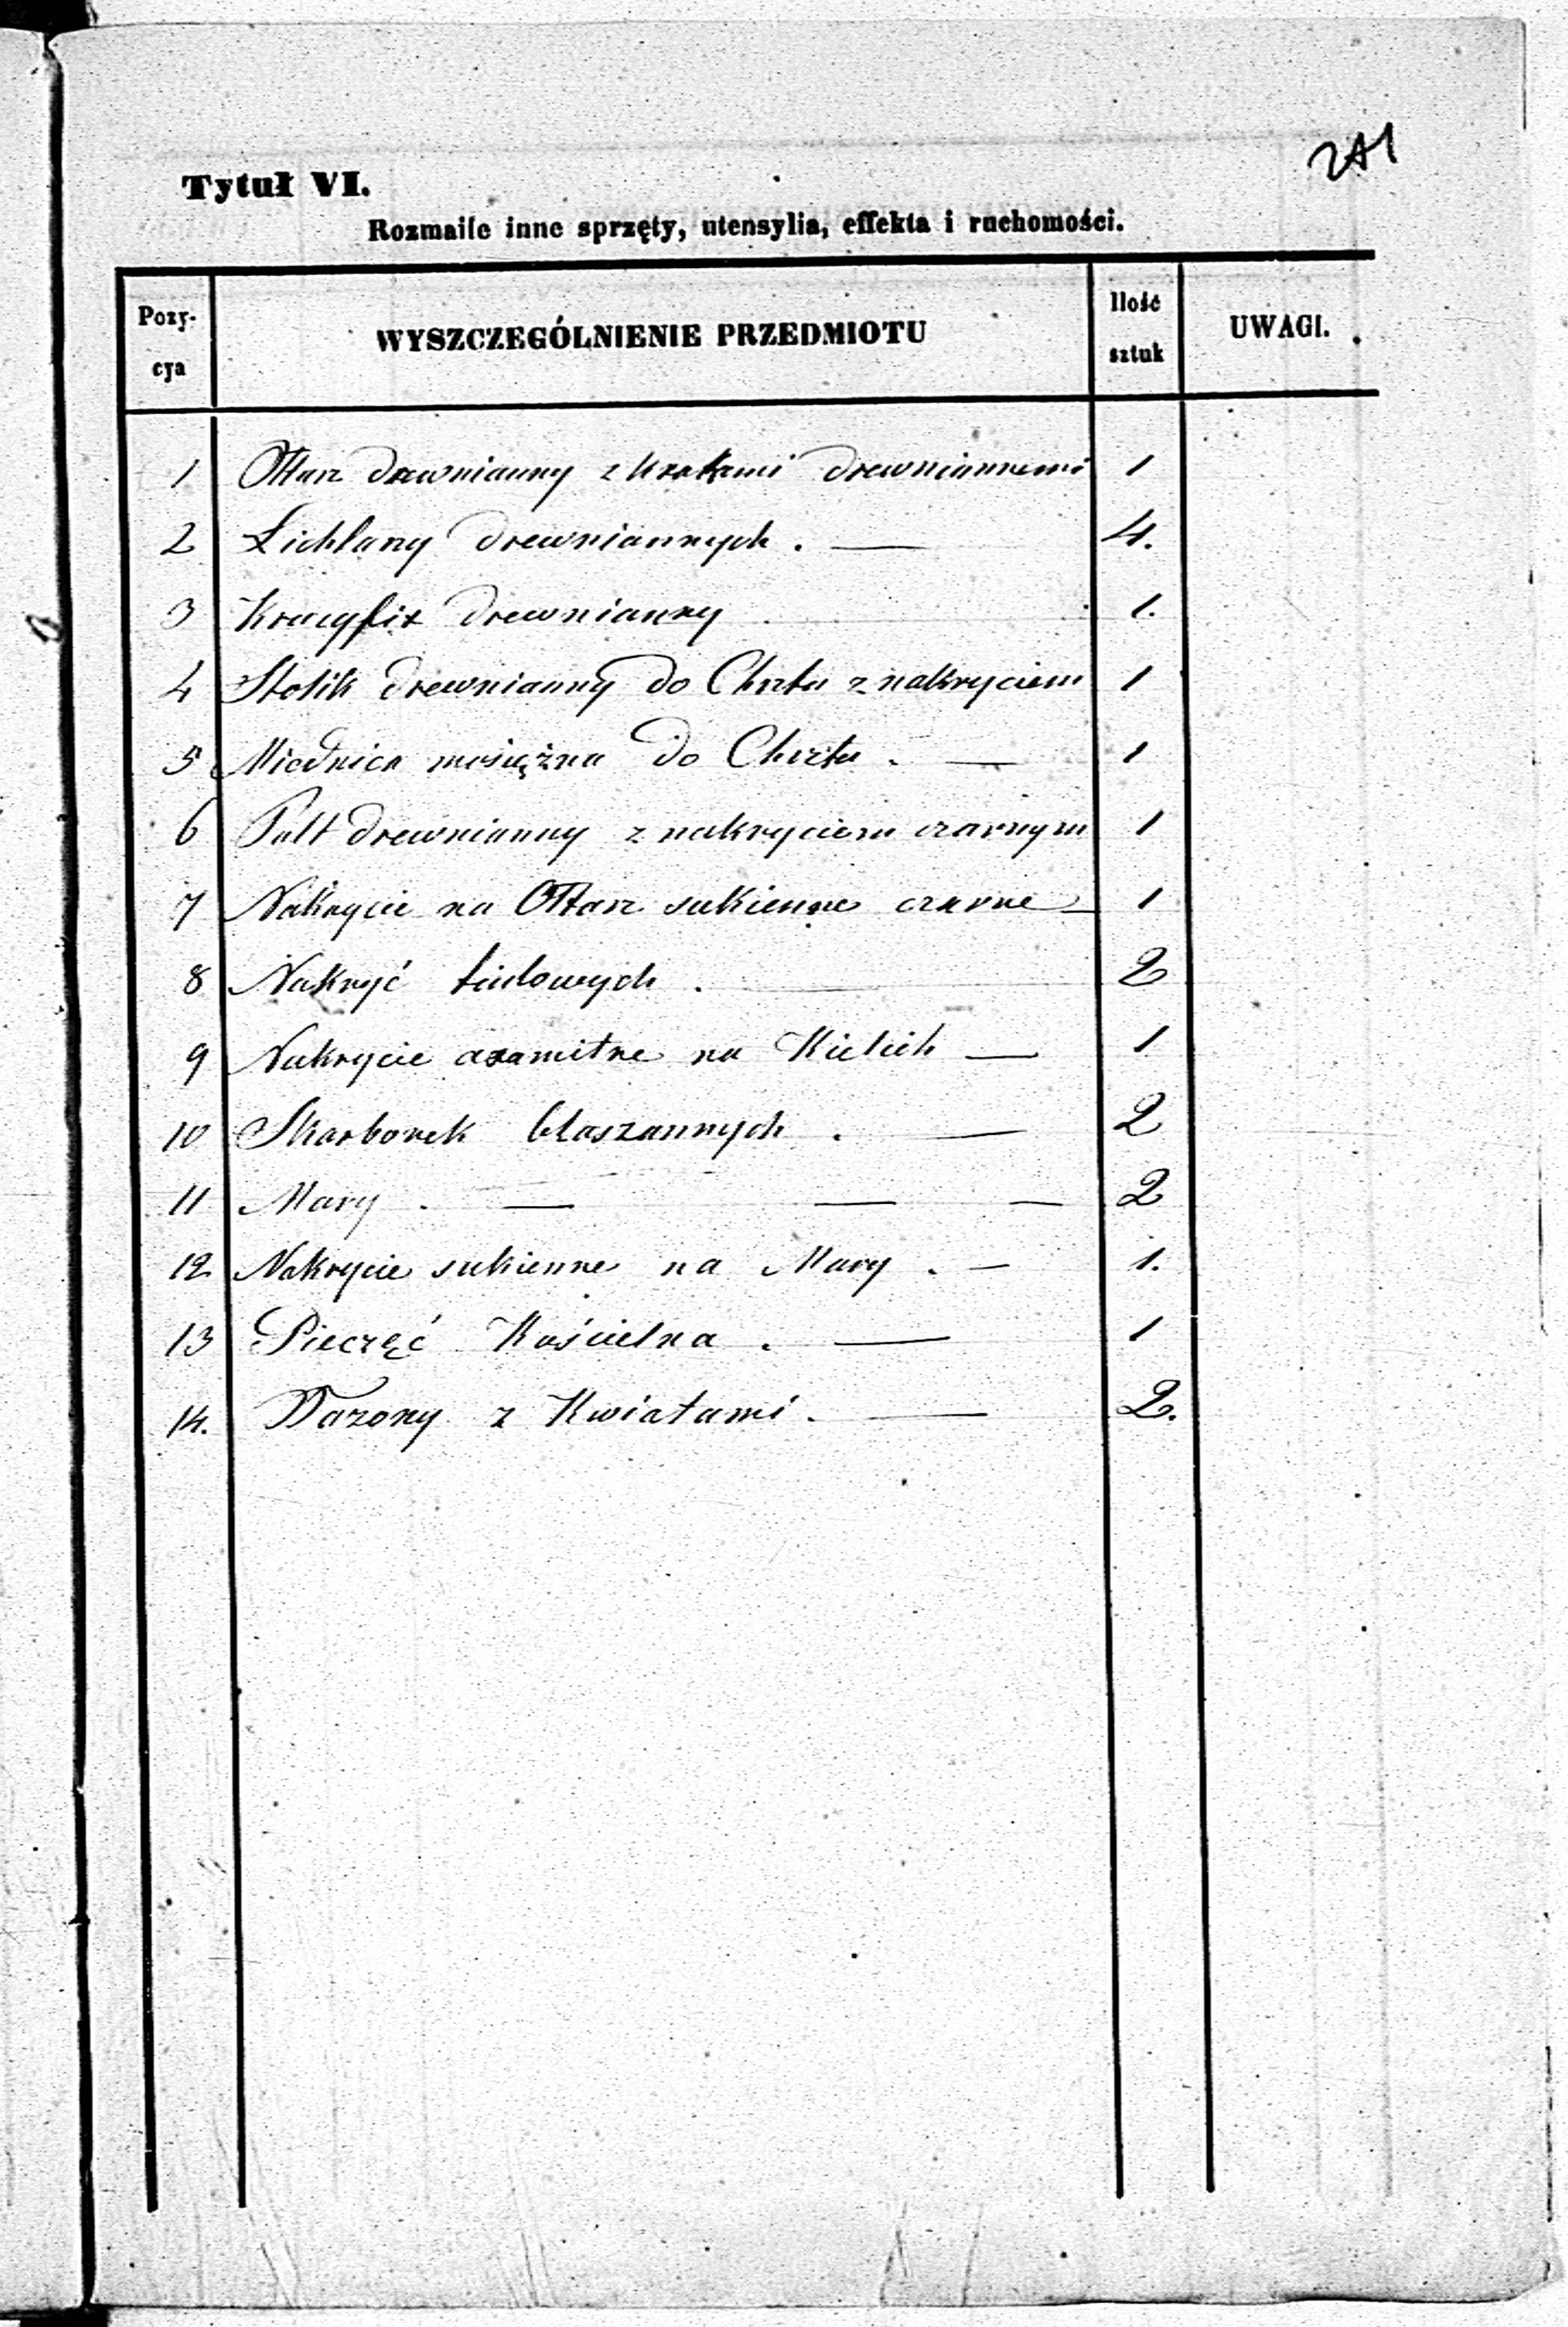 241
Tytuł VI.
Rozmaite inne sprzęty, utensylia, effekta i ruchomości.
Pozy-
cya
WYSZCZEGÓLNIENIE PRZEDMIOTU
Ilość
sztuk
UWAGI.
1 Ołtarz drewnianny z kratami drewniannemi 1
2 Lichtarzy drewniannych . — 4.
3 Krucyfix drewnianny 1.
4 Stolik drewnianny do Chrztu z nakryciem 1
5 Miednica mosiężna do Chrztu . — 1
6 Pult drewnianny z nakryciem czarnym 1
7 Nakrycie na Ołtarz sukienne czarne — 1
8 Nakryć tiulowych . — 2
9 Nakrycie axamitne na Kielich — 1
10 Skarbonek blaszannych . — 2
11 Mary . — — — 2
12 Nakrycie sukienne na Mary . — 1.
13 Pieczęć Kościelna . — 1
14. Wazony z Kwiatami . — 2.